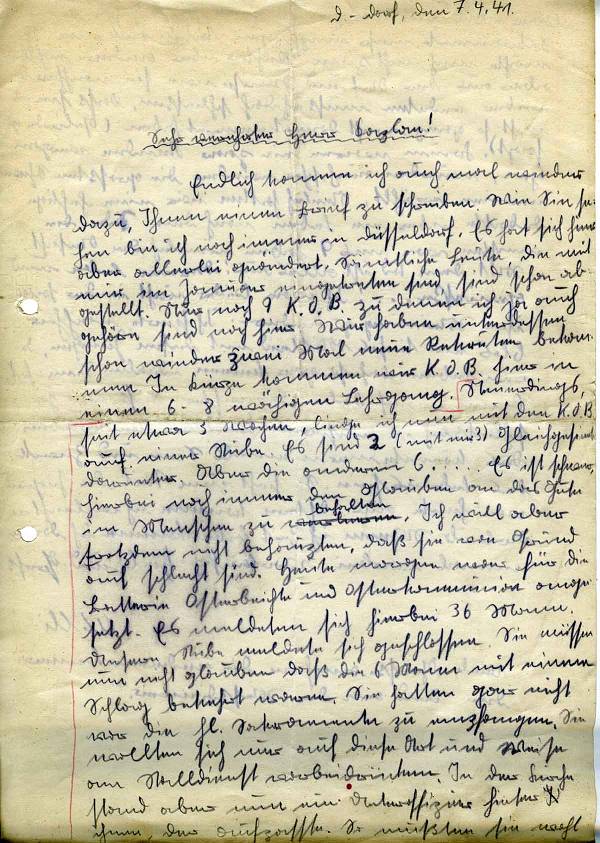 D.-dorf, den 7.4.41.
Sehr verehrter Herr Kaplan!
Endlich komme ich auch mal wieder
dazu, Ihnen einen Brief zu schreiben. Wie Sie se-
hen bin ich noch immer in Düsseldorf. Es hat sich hier
aber allerlei geändert. Sämtliche Leute, die mit
mir im Januar eingetreten sind, sind schon ab-
gestellt. Nur noch 9 K.O.B. zu denen ich ja auch
gehöre sind noch hier. Wir haben unterdessen
schon wieder zwei Mal neue Rekruten bekom-
men. In Kürze kommen wir K.O.B. hier in
einen 6-8 wöchigen Lehrgang. Neuerdings,
seit etwa 3 Wochen, liege ich nun mit den K.O.B.
auf einer Stube. Es sind 2 (mit mir 3) Gleichgesinnte
darunter. Aber die anderen 6.... Es ist schwer,
hierbei noch immer den Glauben an das Gute
im Menschen zu behalten. Ich will aber
trotzdem nicht behaupten, daß sie von Grund
auf schlecht sind. Heute morgen war für die
Batterie Osterbeichte und Osterkommunion ange-
setzt. Es meldeten sich hierbei 36 Mann.
Unsere Stube meldete sich geschlossen. Sie müssen
nun nicht glauben daß die 6 Mann mit einem
Schlag bekehrt waren. Sie hatten gar nicht
vor die hl. Sakramente zu empfangen. Sie
wollten sich nur auf diese Art und Weise
am Stalldienst vorbeidrücken. In der Kirche
stand aber nun ein Unteroffizier hinter
ihnen, der aufpasste. So mußten sie wohl